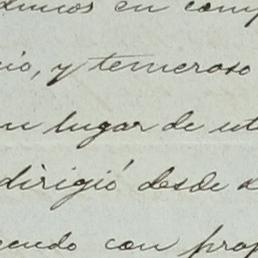 dimos en comp
cio, y temeroso
un lugar de ut
dirigió desde
endo con prop